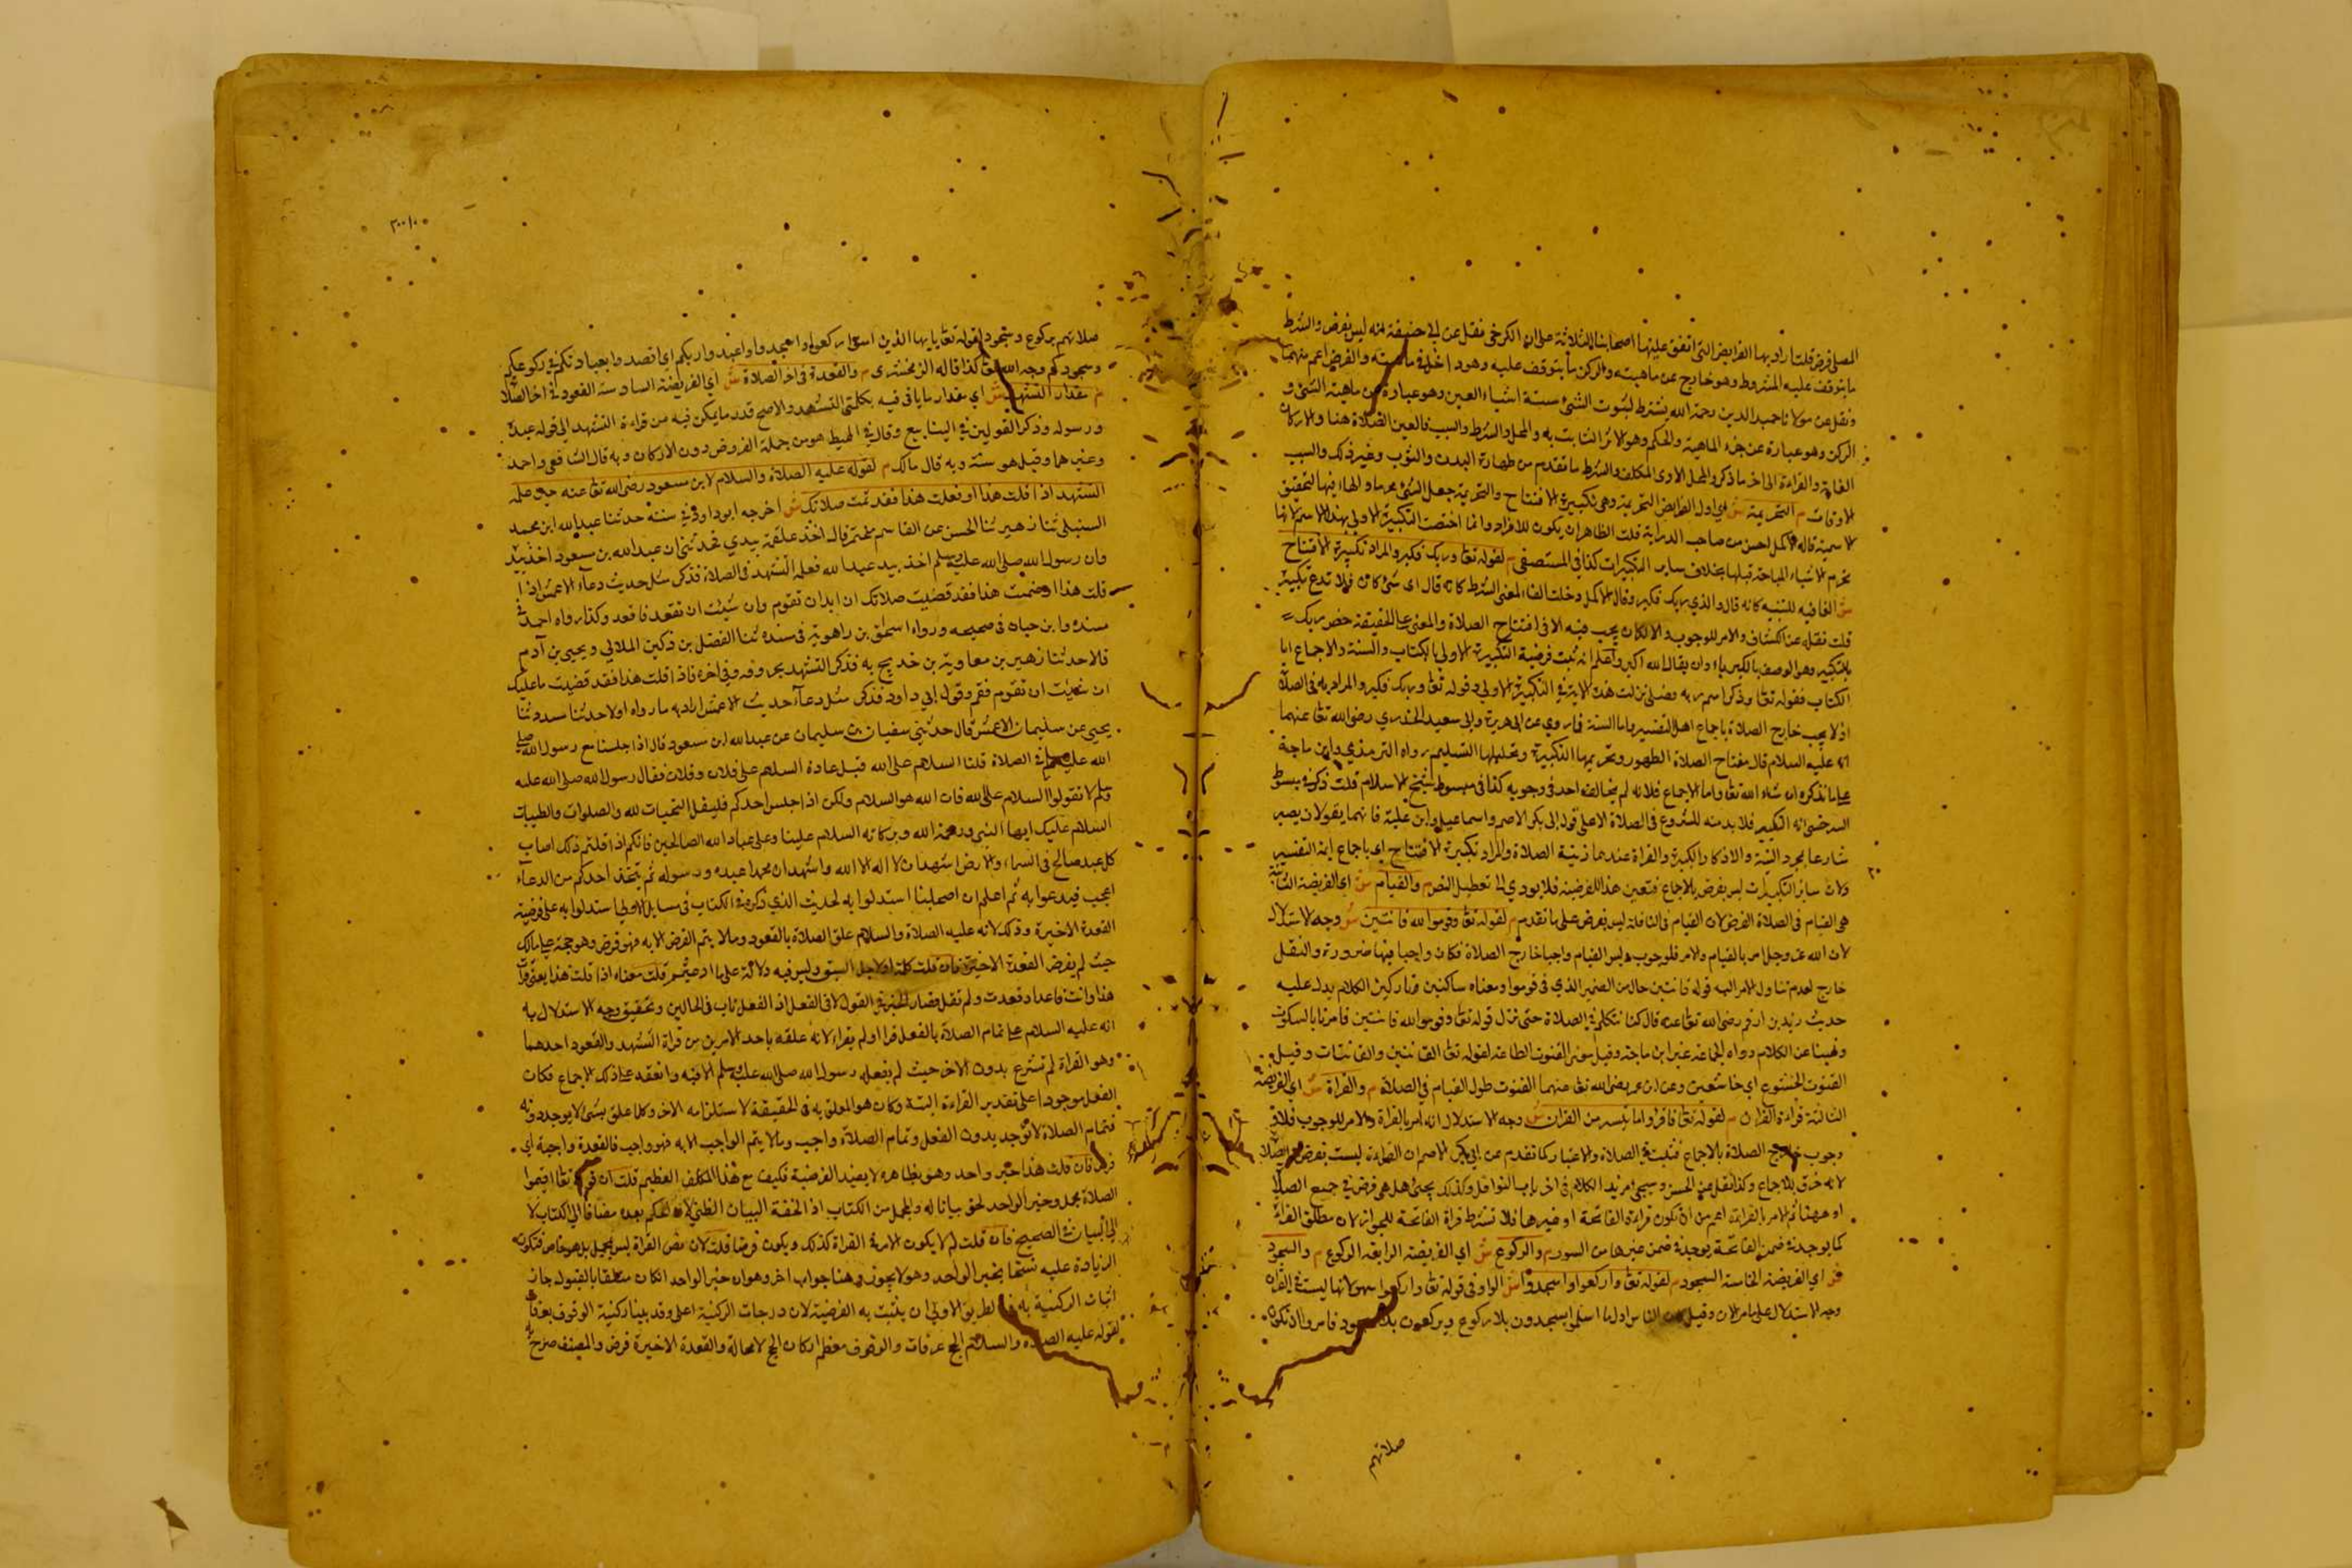 المصلى فرض قلت اراد بها الفرايض التى اتفق عليها اصحابنا الثلاثة على ان الكرخى نقل عن ابى حنيفة انه ليس بفرض والشرط
ما يتوقف عليه المشروط وهو خارج عن ماهيته والركن ما يتوقف عليه وهو داخل فى ماهيته والفرض اعم منهما
ونقل عن مولانا حميد الدين رحمة الله يشترط لثبوت الشئ ستة اشياء العين وهو عبارة عن ماهية الشئ و
الركن وهو عبارة عن جزء الماهية والحكم وهو الاثر الثابت به والمحل والشرط والسبب فالعين الصلاة هنا والاركان
القيام والقراءة الى اخر ما ذكر والمحل الادمى المكلف والشرط ما تقدم من طهارة البدن والثوب وغير ذلك والسبب
الاوقات م التحريمة ش اى اول الفرايض التحريمة وهى تكبيرة الافتتاح والتحريمة جعل الشئ محرما والهاء فيها لتحقيق
الاسمية قاله الاكمل احسن من صاحب الدراية قلت الظاهر ان يكون للافراد وانما اختصت التكبيرة الاولى بهذا الاسم لانها
تحرم الاشياء المباحة قبلها بخلاف سائر التكبيرات كذا فى المستصفى م لقوله تعا وربك فكبر والمراد تكبيرة الافتتاح
ش الفا فيه للتنبيه كانه قال والذي ربك فكبر وقال الاكمل دخلت الفاء لمعنى الشرط كانه قال اى شئ كان فلا تدع تكبيره
قلت نقله عن الكشاف والامر للوجوب الا ان يجب فيه الا فى افتتاح الصلاة والمعنى على الحقيقة خص ربك
بالتكبير وهو الوصف بالكبرياء وان يقال الله اكبر واعلم انه ثبت فرضية التكبيرة الاولى بالكتاب والسنة والاجماع اما
الكتاب فقوله تعا وذكر اسم ربه فصلى نزلت هذه الاية فى التكبيرة الاولى وقوله تعا وربك فكبر والمراد به فى الصلاة
اذ لا يجب خارج الصلاة باجماع اهل التفسير واما السنة فما روى عن ابى هريرة وابى سعيد الخدرى رضى الله تعا عنهما
انه عليه السلام قال مفتاح الصلاة الطهور وتحريمها التكبيرة وتحليلها التسليم رواه الترمذى وابن ماجة
على ما نذكره ان شاء الله تعا واما الاجماع فلانه لم يخالف احد فى وجوبه كذا فى مبسوط شيخ الاسلام قلت ذكر فى مبسوط
السرخسى انه التكبير فلا بد منه للشروع فى الصلاة الا على قول ابى بكر الاصم واسماعيل وابن علية فانهما يقولان يصير
شارعا بمجرد النية والاذكار كالتكبيرة والقراة عندهما زينة الصلاة والمراد تكبيرة الافتتاح اى باجماع ايمة التفسير
ولان سائر التكبيرات ليس بفرض بالاجماع فتعين هذا للفرضية فلا يودى الى تعطيل النص م والقيام ش اى الفريضة الثانية
هى القيام فى الصلاة الفرض لان القيام فى النافلة ليس بفرض على ما تقدم م لقوله تعا وقوموا لله قانتين ش وجه الاستدلال
لان الله عز وجل امر بالقيام والامر للوجوب وليس القيام واجبا خارج الصلاة فكان واجبا فيها ضرورة والنفل
خارج لعدم تناول الامر اليه قوله قانتين حال من الضمير الذى فى قوموا ومعناه ساكتين تاركين الكلام يدل عليه
حديث زيد بن ارقم رضى الله تعا عنه قال كنا نتكلم فى الصلاة حتى نزل قوله تعا وقوموا لله قانتين فامرنا بالسكوت
ونهينا عن الكلام رواه الجماعة غير ابن ماجة وقيل معنى القنوت الطاعة لقوله تعا القانتين والقانتات وقيل
القنوت الخشوع اى خاشعين وعن ابن عمر رضى الله تعا عنهما القنوت طول القيام فى الصلاة م والقراة ش اى الفريضة
الثالثة قراءة القران م لقوله تعا فاقرؤا ما تيسر من القران ش وجه الاستدلال انه امر بالقراة والامر للوجوب فلا
وجوب خارج الصلاة بالاجماع فثبت فى الصلاة والاعتبار كما تقدم عن ابى بكر الاصم ان القراءة ليست بفرض فى الصلاة
لانه خرق بالاجماع وكذا نقل عن الحسن وسيجى مزيد الكلام فى اخر باب النوافل وكذلك يجئ هل هى فرض فى جميع الصلاة
او بعضها ثم الامر بالقراءة اعم من ان تكون قراءة الفاتحة او غيرها فلا تشترط قراة الفاتحة للجواز لان مطلق القراة
كما يوجد فى ضمن الفاتحة يوجد فى ضمن غيرها من السور م والركوع ش اى الفريضة الرابعة الركوع م والسجود
ش اى الفريضة الخامسة السجود م لقوله تعا واركعوا واسجدوا ش الواو فى قوله تعا واركعوا سهو لانها ليست فى القران
وجه الاستدلال على ما مر الان وقيل كان الناس اول ما اسلموا يسجدون بلا ركوع ويركعون بلا سجود فامروا ان تكون
صلاتهم
صلاتهم بركوع وسجود لقوله تعا يايها الذين امنوا اركعوا واسجدوا واعبدوا ربكم اى اقصدوا بعبادتكم فى ركوعكم
وسجودكم وجه الله تعا كذا قاله الزمخشرى م والقعدة فى اخر الصلاة ش اى الفريضة السادسة القعود فى اخر الصلاة
م مقدار التشهد ش اى مقدار ما ياتى فيه بكلمتى التشهد والاصح قدر ما يمكن فيه من قراءة التشهد الى قوله عبده
ورسوله وذكر القولين فى الينابيع وقال فى المحيط هو من جملة الفروض دون الاركان وبه قال الشافعى واحمد
وغيرهما وقيل هو سنة وبه قال مالك م لقوله عليه الصلاة والسلام لابن مسعود رضى الله تعا عنه حين علمه
التشهد اذا قلت هذا او فعلت هذا فقد تمت صلاتك ش اخرجه ابو داود فى سننه حدثنا عبد الله ابن محمد
النفيلى ثنا زهير ثنا الحسن عن القاسم مخيمرة قال اخذ علقمة بيدي فحدثنى ان عبد الله بن مسعود اخذ بيده
وان رسول الله صلى الله عليه وسلم اخذ بيد عبد الله فعلمه التشهد فى الصلاة فذكر مثل حديث دعاء الاعمش اذا
قلت هذا او قضيت هذا فقد قضيت صلاتك ان شئت ان تقوم فقم وان شئت ان تقعد فاقعد وكذا رواه احمد فى
مسنده وابن حبان فى صحيحه ورواه اسحق بن راهويه فى مسنده ثنا الفضل بن دكين الملائى ويحيى بن آدم
قالا حدثنا زهير بن معاوية بن خديج به فذكر التشهد بحروفه وفى اخره فاذا قلت هذا فقد قضيت ما عليك
ان شئت ان تقوم فقم وقول ابى داود فذكر مثل دعاء حديث الاعمش اراد به ما رواه اولا حدثنا مسدد ثنا
يحيى عن سليمان الاعمش قال حدثنى سفيان بن سليمان عن عبد الله ابن مسعود قال اذا جلسنا مع رسول الله صلى
الله عليه وسلم فى الصلاة قلنا السلام على الله قبل عباده السلام على فلان وفلان فقال رسول الله صلى الله عليه
وسلم لا تقولوا السلام على الله فان الله هو السلام ولكن اذا جلس احدكم فليقل التحيات لله والصلوات والطيبات
السلام عليك ايها النبى ورحمة الله وبركاته السلام علينا وعلى عباد الله الصالحين فانكم اذا قلتم ذلك اصاب
كل عبد صالح فى السماء والارض اشهد ان لا اله الا الله واشهد ان محمدا عبده ورسوله ثم يتخذ احدكم من الدعاء
اعجب فيدعوا به ثم اعلم ان اصحابنا استدلوا به لحديث الذى ذكره فى الكتاب فى مسايل الاولى استدلوا به على فرضية
القعدة الاخيرة وذلك لانه عليه الصلاة والسلام علق الصلاة بالقعود وما لا يتم الفرض الا به فهو فرض وهو حجة على مالك
حيث لم يفرض القعدة الاخيرة فان قلت كلمة او لاحد الشيئين وليس فيه دلالة على ما ادعيتم قلت معناه اذا قلت هذا يعنى قرات
هذا وانت قاعد او قعدت ولم تقل فصار الخبر فى القول لا فى الفعل اذ الفعل ثابت فى الحالين وتحقيق وجه الاستدلال به
انه عليه السلام علق تمام الصلاة بالفعل قرا او لم يقرا لانه علقه باحد الامرين من قراة التشهد والقعود احدهما
وهو القراة لم تشرع بدون الاخر حيث لم يفعله رسول الله صلى الله عليه وسلم الا فيه وانعقد على ذلك الاجماع فكان
الفعل موجودا على تقدير القراءة البتة وكان هو المعلق به فى الحقيقة لاستلزامه الاخر وكلما علق بشئ لا يوجد دونه
فتمام الصلاة لا توجد بدون الفعل وتمام الصلاة واجب وما لا يتم الواجب الا به فهو واجب فالقعدة واجبة اى
فرض فان قلت هذا خبر واحد وهو بظاهره لا يفيد الفرضية فكيف مع هذا التكلف العظيم قلت ان قوله تعا اقيموا
الصلاة مجمل وخبر الواحد لحق بيانا له والمجمل من الكتاب اذا لحقه البيان الظنى كان الحكم بعده مضافا الى الكتاب لا
الى البيان فى الصحيح فان قلت لم لا يكون الامر فى القراة كذلك ويكون فرضا قلت لان نص القراة ليس بمجمل بل هو خاص فتكون
الزيادة عليه نسخا بخبر الواحد وهو لا يجوز وهنا جواب اخر وهو ان خبر الواحد اذا كان متلقا بالقبول جاز
اثبات الركنية به فبالطريق الاولى ان يثبت به الفرضية لان درجات الركنية اعلى وقد بينا ركنية الوقوف بعرفات
لقوله عليه الصلاة والسلام الحج عرفات والوقوف معظم اركان الحج لا محالة والقعدة الاخيرة فرض والمصنف صرح